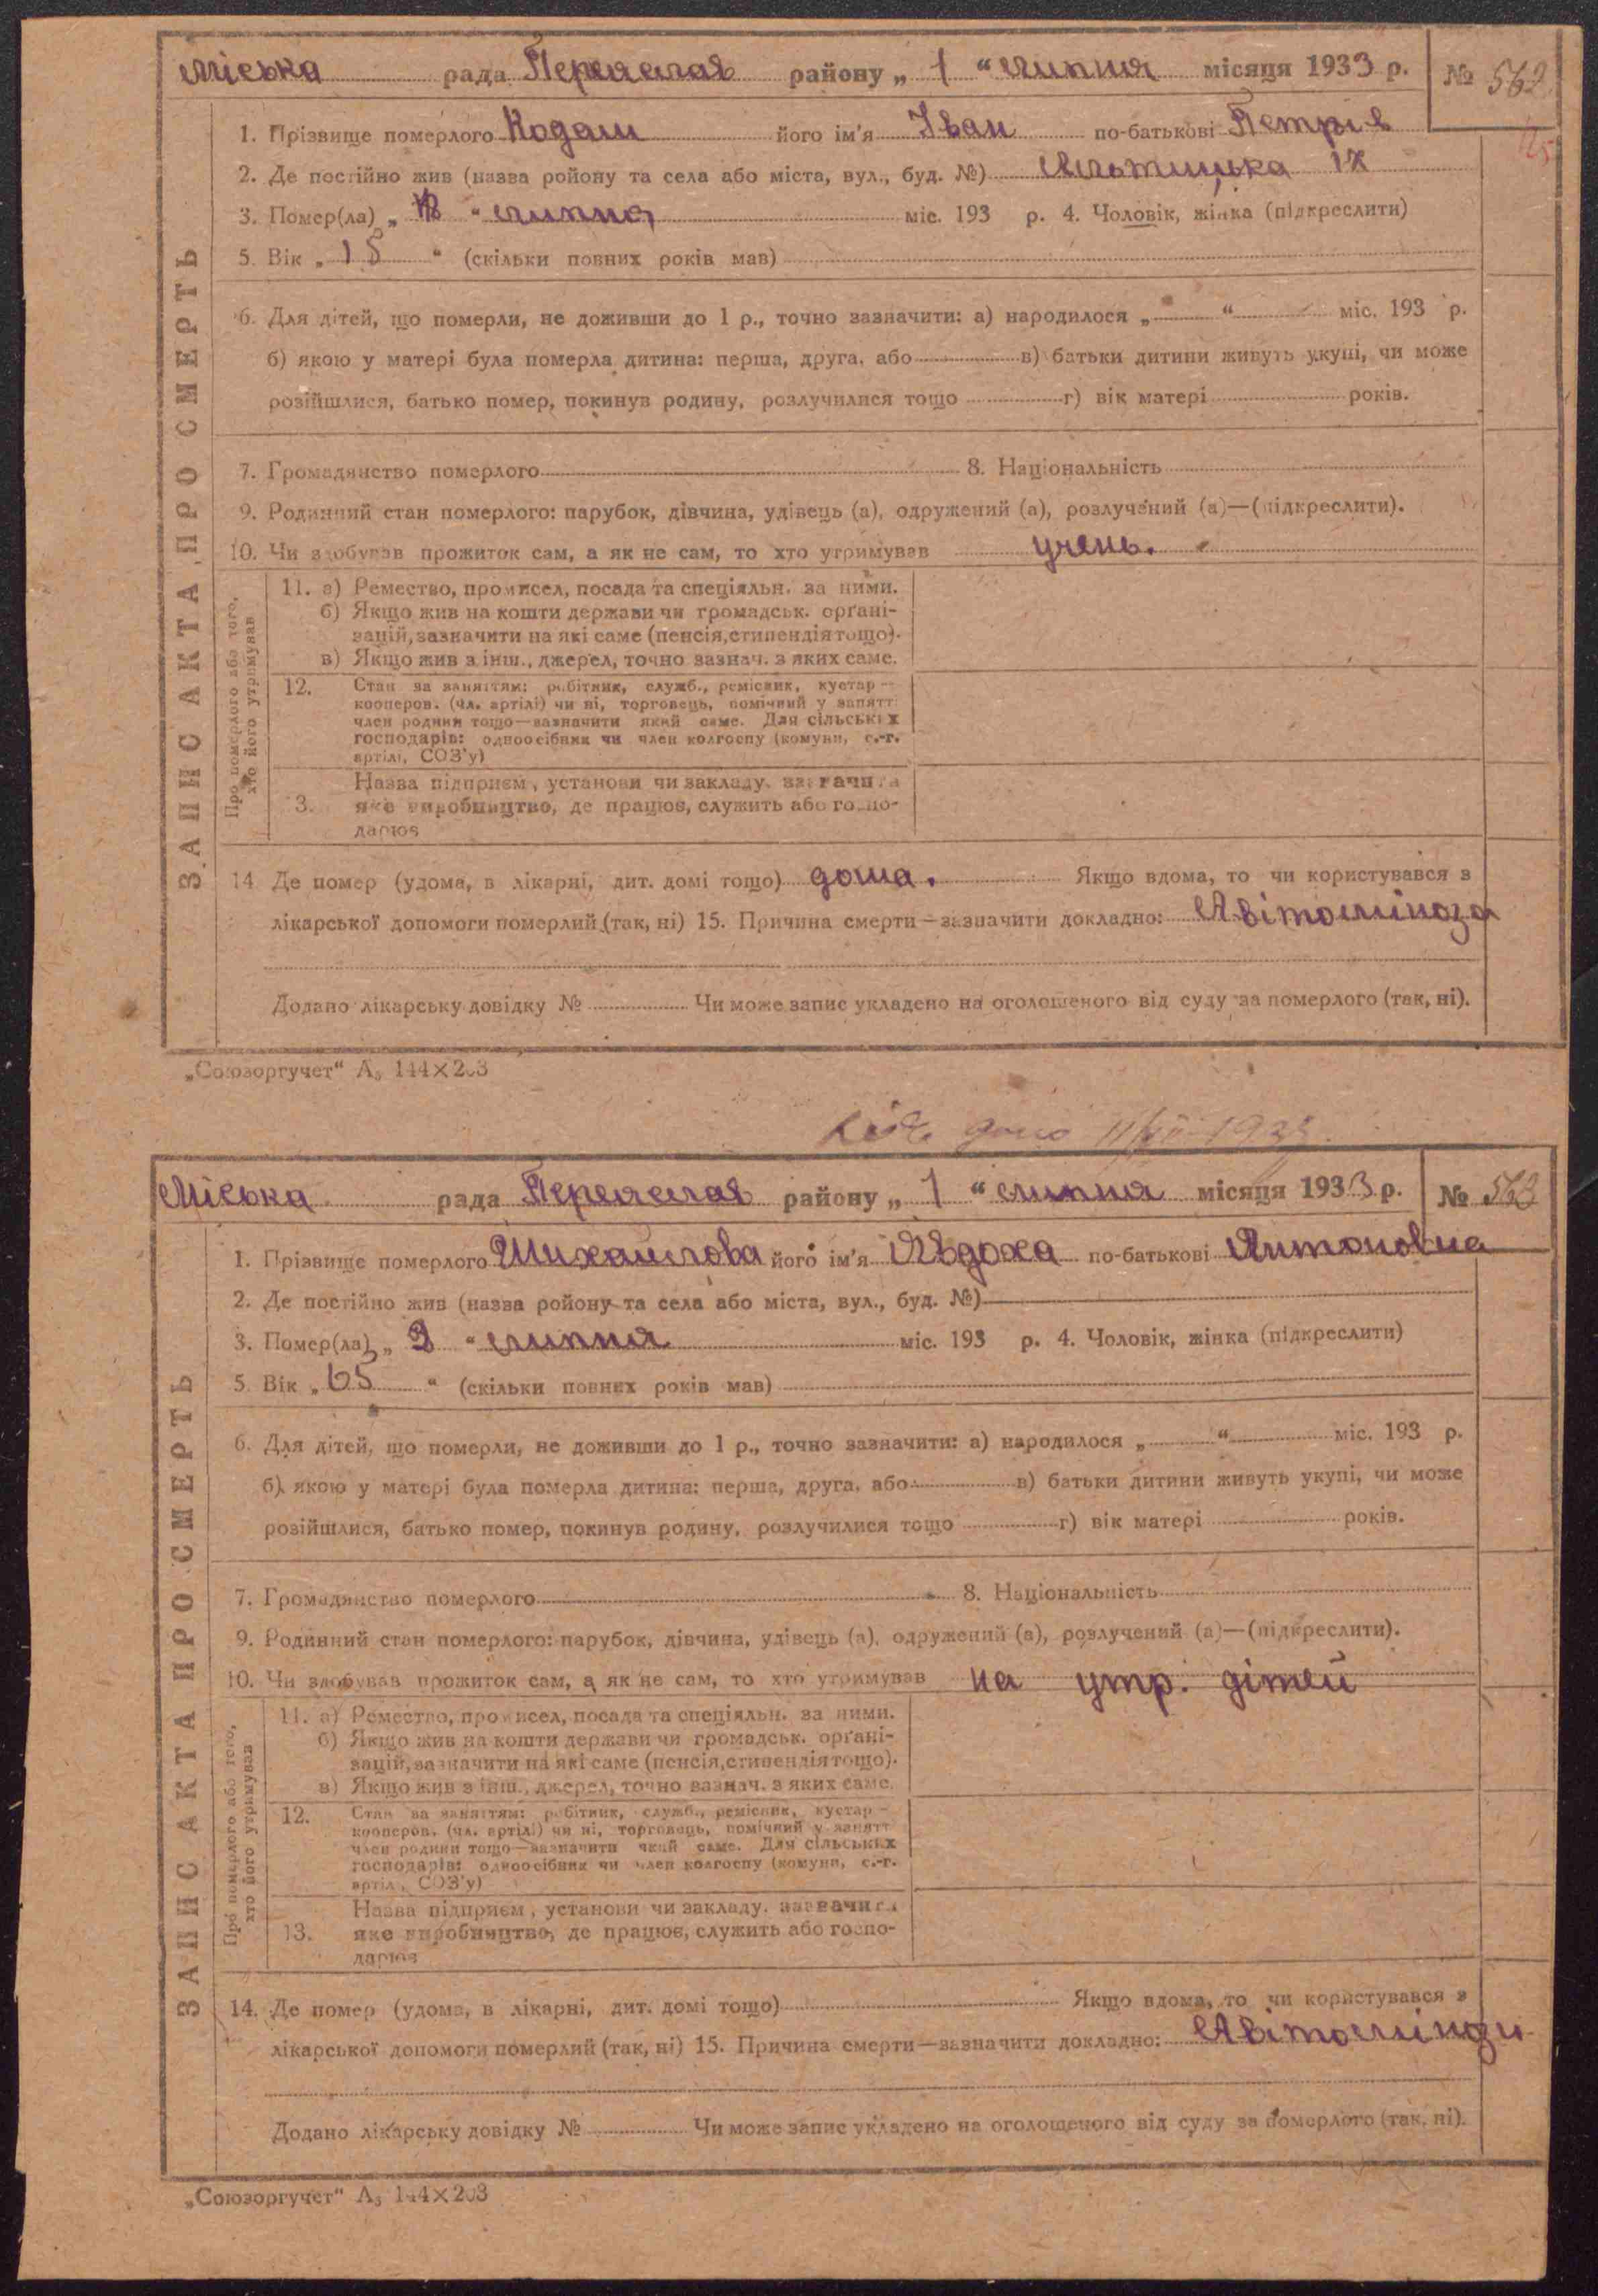 міська рада Переяслав району „ 1 “ липня місяця 1933 р. № 562
1. Прізвище померлого Кодаш його ім'я Іван по-батькові Петрів
2. Де постійно жив (назва ройону та села або міста, вул., буд. №) Альтицька 17
3. Помер(ла) „ “ липня міс. 193 р. 4. Чоловік, жінка (підкреслити)
5. Вік „ 15 “ (скільки повних років мав)
6. Для дітей, що померли, не доживши до 1 р., точно зазначити: а) народилося „ “ міс. 193 р.
б) якою у матері була померла дитина: перша, друга, або в) батьки дитини живуть укупі, чи може
розійшлися, батько помер, покинув родину, розлучилися тощо г) вік матері років.
7. Громадянство померлого 8. Національність
9. Родинний стан померлого: парубок, дівчина, удівець (а), одружений (а), розлучений (а)—(підкреслити).
10. Чи здобував прожиток сам, а як не сам, то хто утримував учень.
11. а) Ремество, промисел, посада та спеціяльн. за ними.
б) Якщо жив на кошти держави чи громадськ. орґані-
зацій, зазначити на які саме (пенсія, стипендія тощо).
в) Якщо жив з інш., джерел, точно зазнач. з яких саме.
12. Стан за заняттям: робітник, служб., ремісник, кустар—
кооперов. (чл. артілі) чи ні, торговець, помічний у занятт.
член родини тощо—зазначити який саме. Для сільських
господарів: одноосібник чи член колгоспу (комуни, с.-г.
артілі, СОЗ'у)
Назва підприєм, установи чи закладу, зазначити
3. яке виробництво, де працює, служить або госпо-
дарює
14 Де помер (удома, в лікарні, дит. домі тощо) дома. Якщо вдома, то чи користувався з
лікарської допомоги померлий (так, ні) 15. Причина смерти—зазначити докладно: Авітоміноза
Додано лікарську довідку № Чи може запис укладено на оголошеного від суду за померлого (так, ні).
ЗАПИС АКТА ПРО СМЕРТЬ
Про померлого або того,
хто його утримував
„Союзоргучет“ А5 144×203
1933
Міська рада Переяслав району „ 1 “ липня місяця 1933 р. № 563
1. Прізвище померлого Михайлова його ім'я Явдоха по-батькові Антоновна
2. Де постійно жив (назва ройону та села або міста, вул., буд. №)
3. Помер(ла) „ “ липня міс. 193 р. 4. Чоловік, жінка (підкреслити)
5. Вік „ 65 “ (скільки повних років мав)
6. Для дітей, що померли, не доживши до 1 р., точно зазначити: а) народилося „ “ міс. 193 р.
б) якою у матері була померла дитина: перша, друга, або в) батьки дитини живуть укупі, чи може
розійшлися, батько помер, покинув родину, розлучилися тощо г) вік матері років.
7. Громадянство померлого 8. Національність
9. Родинний стан померлого: парубок, дівчина, удівець (а), одружений (а), розлучений (а)—(підкреслити).
10. Чи здобував прожиток сам, а як не сам, то хто утримував на утр. дітей
11. а) Ремество, промисел, посада та спеціяльн. за ними.
б) Якщо жив на кошти держави чи громадськ. орґані-
зацій, зазначити на які саме (пенсія, стипендія тощо).
в) Якщо жив з інш., джерел, точно зазнач. з яких саме.
12. Стан за заняттям: робітник, служб., ремісник, кустар—
кооперов. (чл. артілі) чи ні, торговець, помічний у занятт
член родини тощо—зазначити який саме. Для сільських
господарів: одноосібник чи член колгоспу (комуни, с.-г.
артілі, СОЗ'у)
Назва підприєм, установи чи закладу, зазначити
13. яке виробництво, де працює, служить або госпо-
дарює
14. Де помер (удома, в лікарні, дит. домі тощо) Якщо вдома, то чи користувався з
лікарської допомоги померлий (так, ні) 15. Причина смерти—зазначити докладно:
Додано лікарську довідку № Чи може запис укладено на оголошеного від суду за померлого (так, ні).
ЗАПИС АКТА ПРО СМЕРТЬ
Про померлого або того,
хто його утримував
„Союзоргучет“ А5 144×203